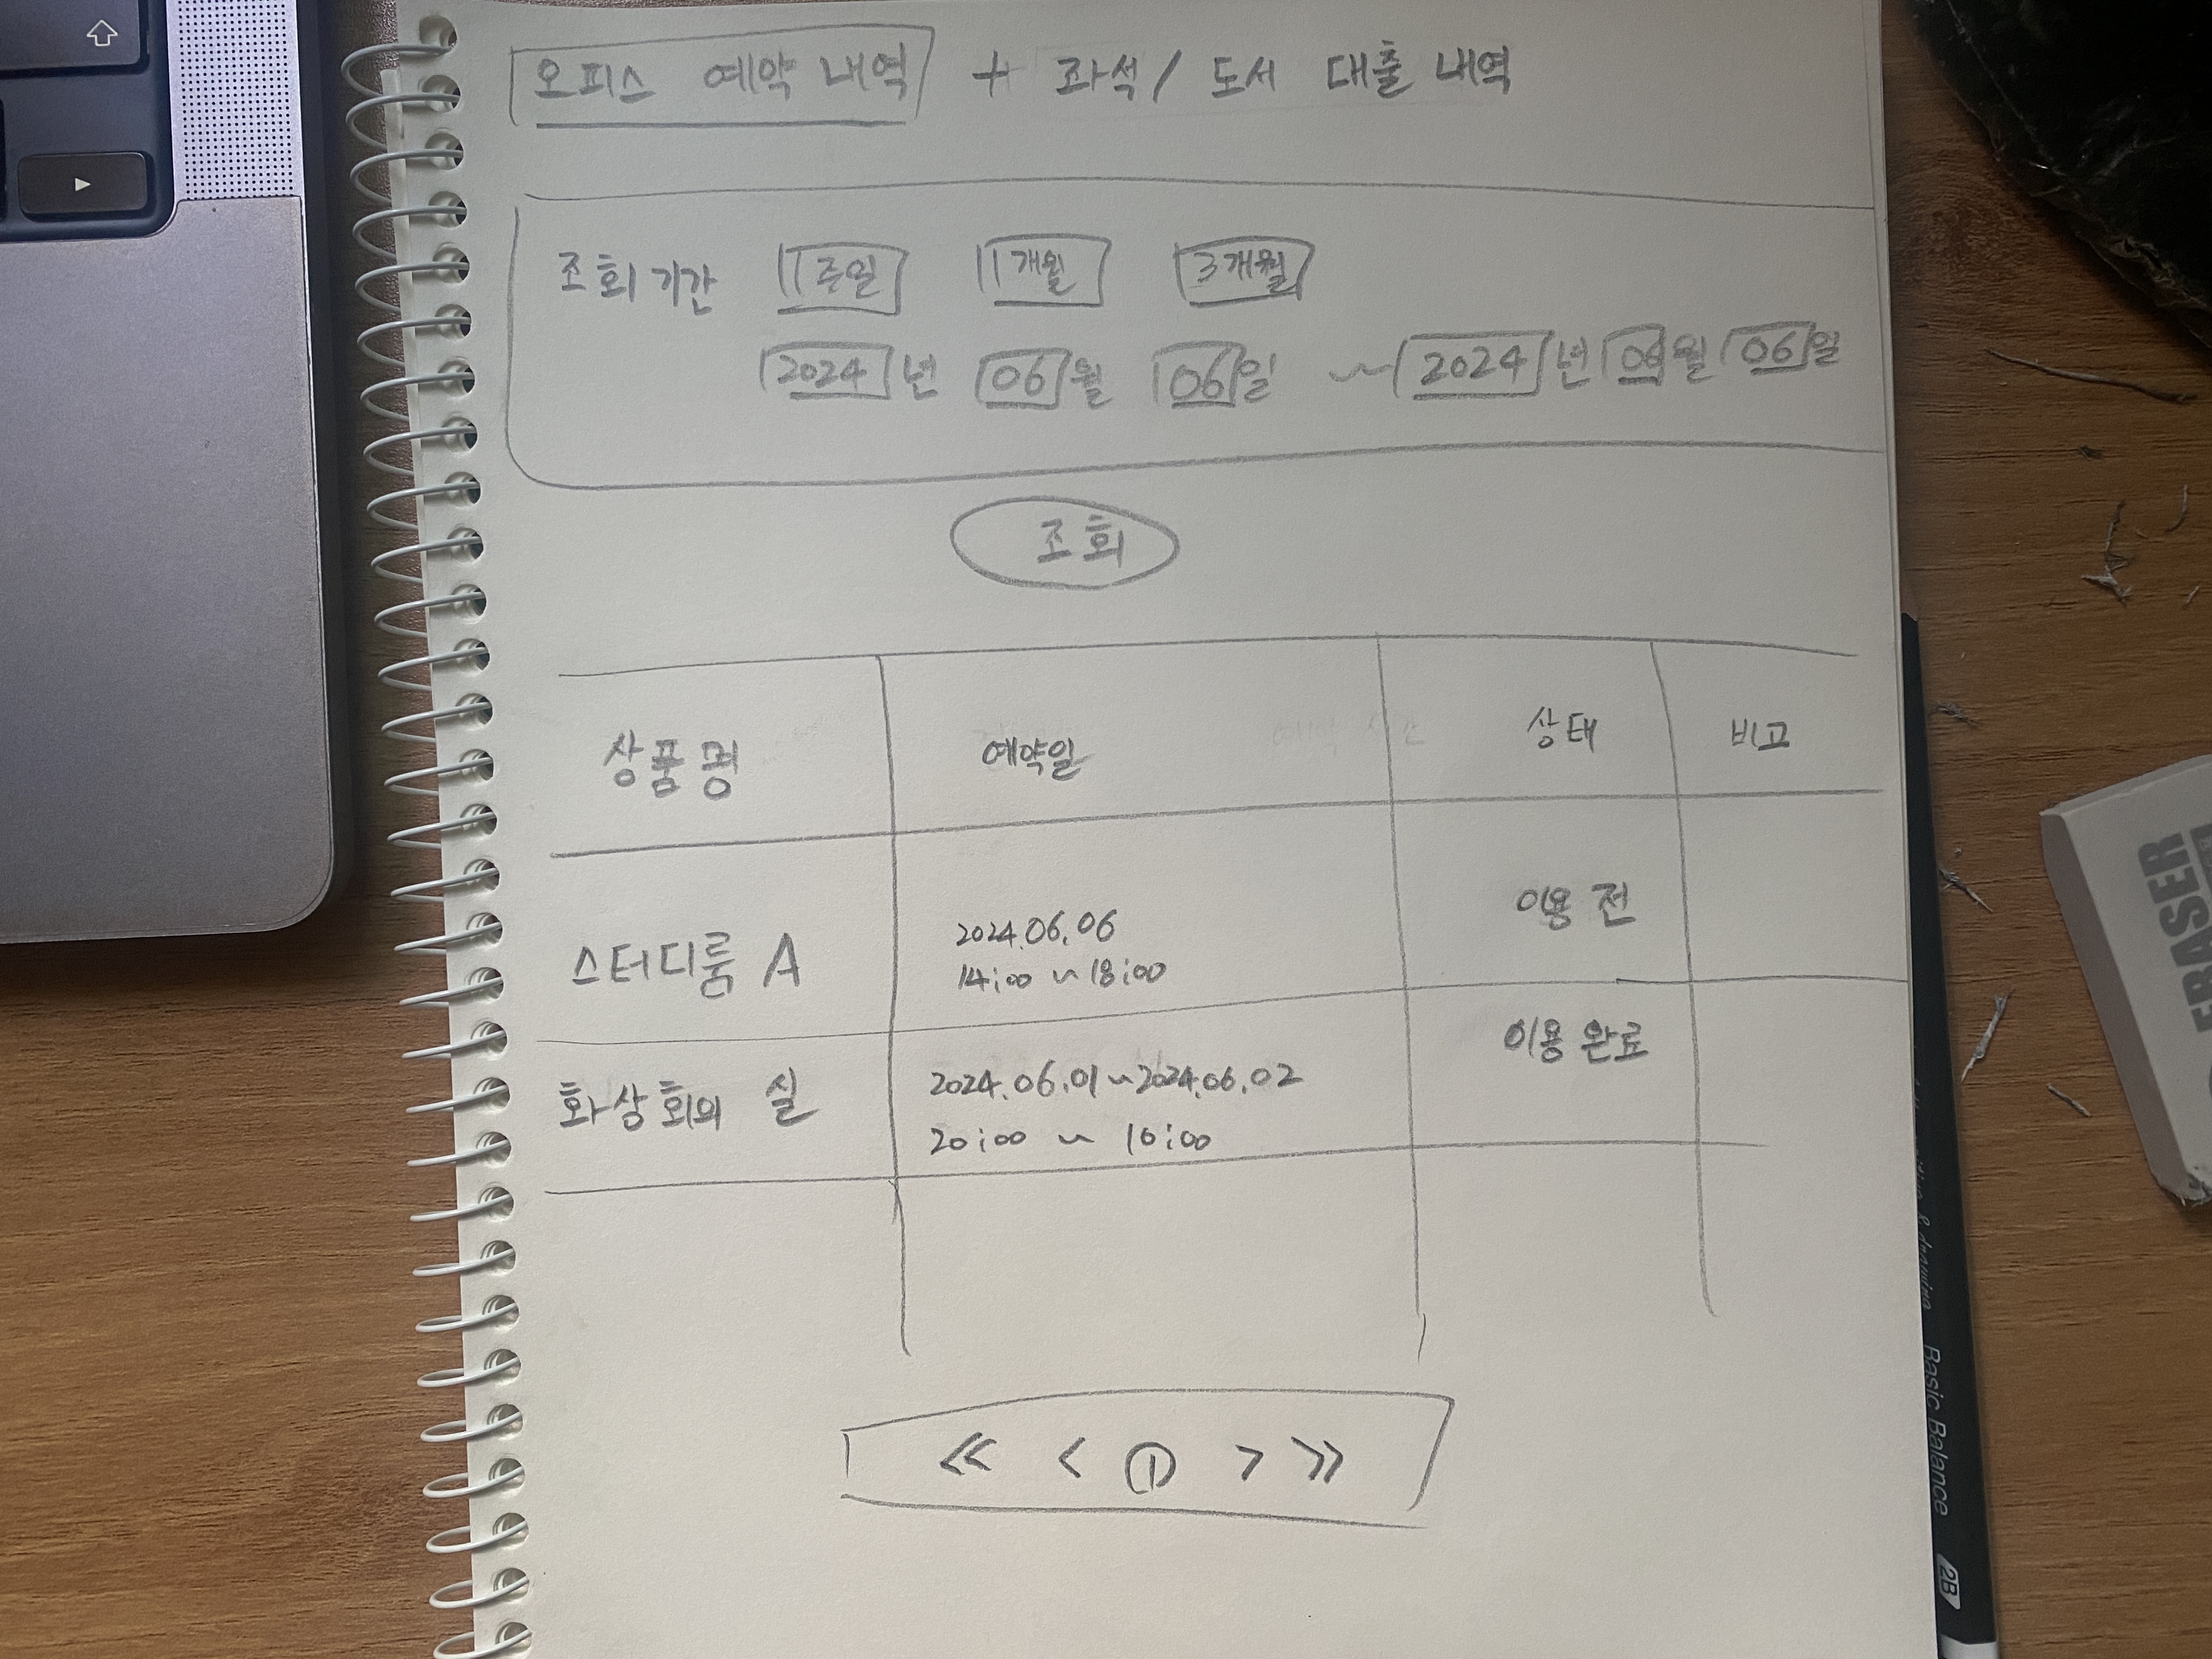 오피스 예약 내역 + 좌석/ 도서 대출 내역
조회 기간 1주일 1개월 3개월
2024년 06월 06일 ~ 2024년 06월 06일
조회
상품명 예약일 상태 비고
스터디룸 A
2024.06.06
14:00 ~ 18:00
이용 전
화상회의 실
2024.06.01 ~ 2024.06.02
20:00 ~ 10:00
이용 완료
≪ < ① > ≫
ERASER
Basic Balance 2B